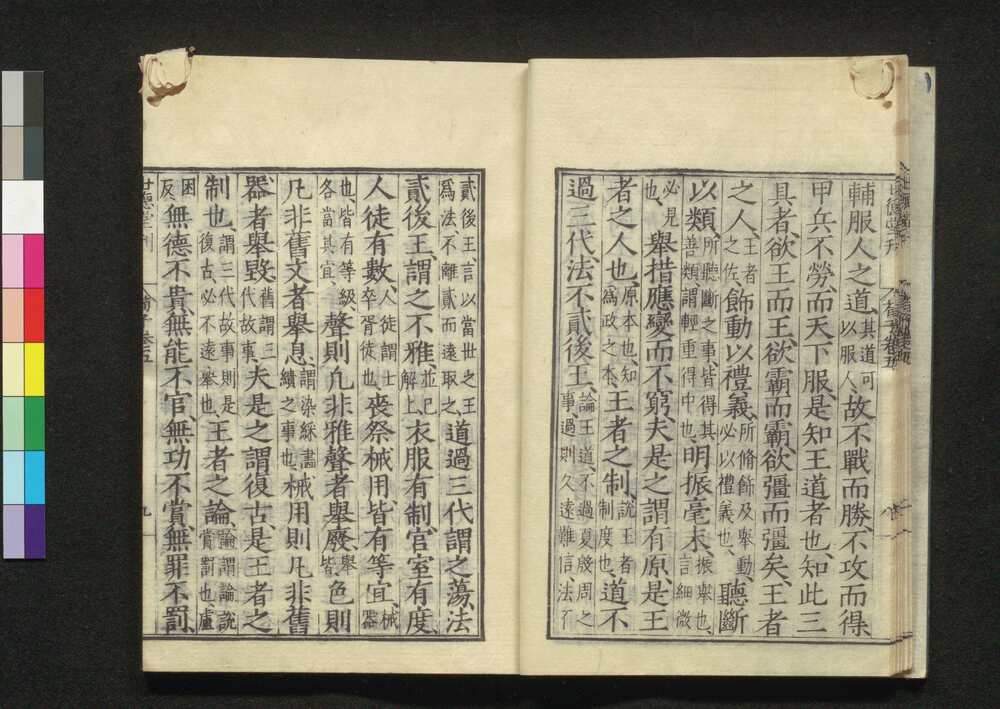 輔服人之道、其道可以服人、故不戰而勝、不攻而得
甲兵不勞、而天下服、是知王道者也、知此三
具者、欲王而王、欲霸而霸、欲彊而彊矣、王者
之人、王者之佐、飾動以禮義、所脩飾及舉動、必以禮義也、聽斷
以類、所聽斷之事、皆得其善類、謂輕重得中也、明振毫末、振舉也、言細微
必見也、舉措應變而不窮、夫是之謂有原、是王
者之人也、原本也、知爲政之本、王者之制、說王者制度也、道不
過三代、法不貳後王、論王道、不過夏殷周之事、過則久遠難信、法不
貳後王、言以當世之王爲法、不離貳而遠取之、道過三代謂之蕩、法
貳後王、謂之不雅、並已解上、衣服有制、宮室有度、
人徒有數、人徒謂士卒胥徒也、喪祭械用皆有等宜、械器
也、皆有等級、各當其宜、聲則凡非雅聲者舉廢、舉皆、色則
凡非舊文者舉息、謂染綵畫繢之事也、械用則凡非舊
器者舉毀、舊謂三代故事、夫是之謂復古、是王者之
制也、謂三代故事則是復古、必不遠舉也、王者之論、論謂論說賞罰也、盧
困反、無德不貴、無能不官、無功不賞、無罪不罰、
九